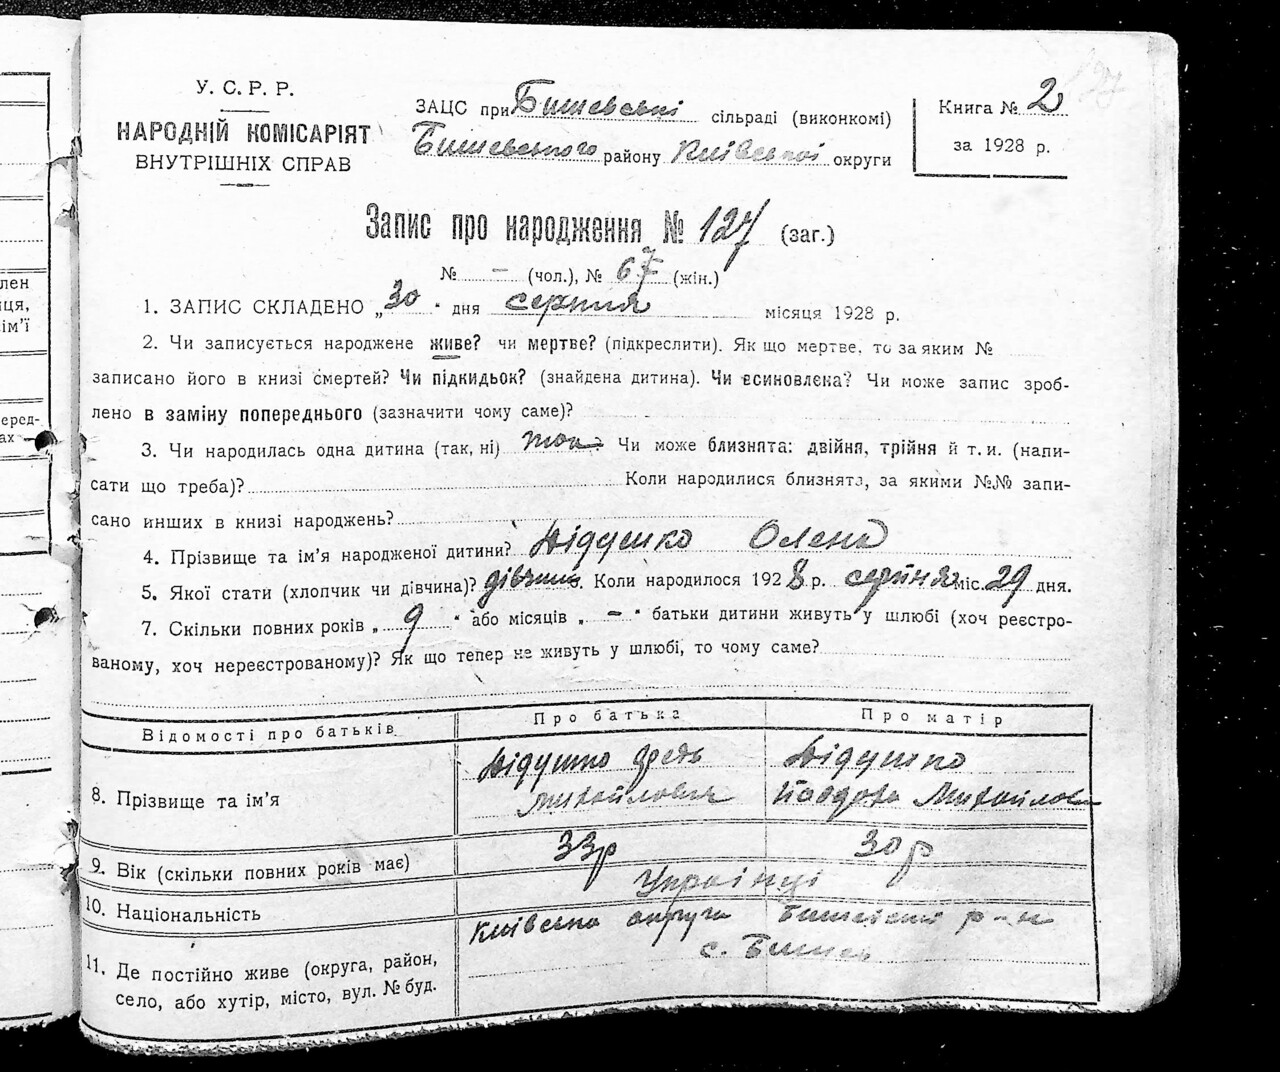 127
У. С. Р. Р.
НАРОДНІЙ КОМІСАРІЯТ
ВНУТРІШНІХ СПРАВ
ЗАЦС при Бишевській сільраді (виконкомі)
Бишевського району Київської округи
Книга № 2
за 1928 р.
Запис про народження № 127 (заг.)
№ — (чол.), № 67 (жін.)
1. ЗАПИС СКЛАДЕНО „30" дня серпня місяця 1928 р.
2. Чи записується народжене живе? чи мертве? (підкреслити). Як що мертве, то за яким №
записано його в книзі смертей? Чи підкидьок? (знайдена дитина). Чи всиновлена? Чи може запис зроб-
лено в заміну попереднього (зазначити чому саме)?
3. Чи народилась одна дитина (так, ні) так Чи може близнята: двійня, трійня й т. и. (напи-
сати що треба)? Коли народилися близнята, за якими №№ запи-
сано инших в книзі народжень?
4. Прізвище та ім'я народженої дитини? Дідушко Олена
5. Якої стати (хлопчик чи дівчина)? дівчина. Коли народилося 1928 р. серпня міс. 29 дня.
7. Скільки повних років „9" або місяців „—" батьки дитини живуть у шлюбі (хоч реєстро-
ваному, хоч нереєстрованому)? Як що тепер не живуть у шлюбі, то чому саме?
Відомості про батьків.
Про батька
Про матір
8. Прізвище та ім'я
Дідушко
Михайлович
Дідушко
Михайлов
9. Вік (скільки повних років має)
33р
30р
10. Національність
Українці
11. Де постійно живе (округа, район,
село, або хутір, місто, вул. № буд.
Київська округа Бишівський р-н
с. Бишев
лен
ця,
ім'ї
еред-
ах